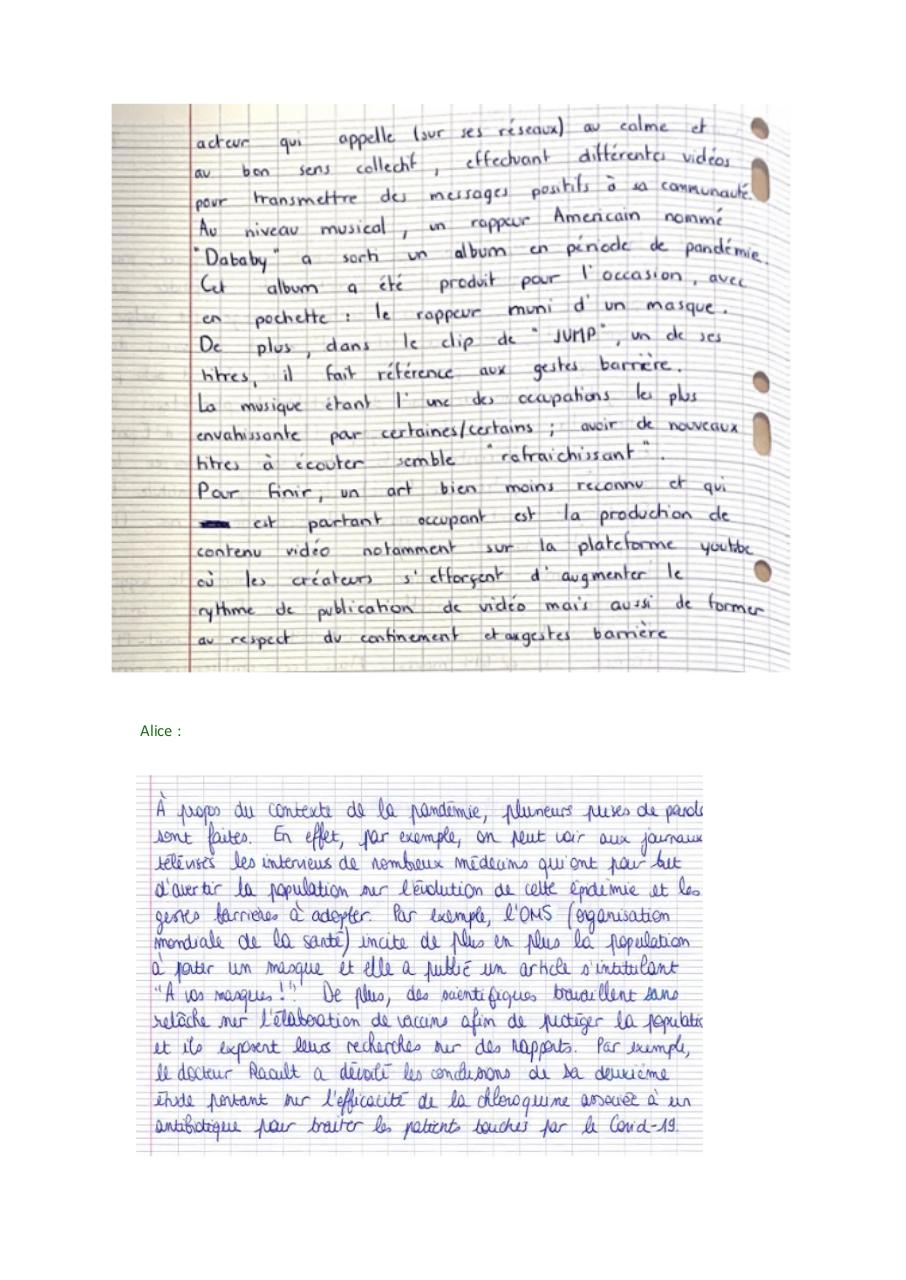 acteur qui appelle (sur ses réseaux) au calme et
au bon sens collectif, effectuant différentes vidéos
pour transmettre des messages positifs à sa communauté.
Au niveau musical, un rappeur Americain nommé
"Dababy" a sorti un album en période de pandémie.
Cet album a été produit pour l'occasion, avec
en pochette : le rappeur muni d'un masque.
De plus, dans le clip de "JUMP", un de ses
titres, il fait référence aux gestes barrière.
La musique étant l'une des occupations les plus
envahissante par certaines/certains ; avoir de nouveaux
titres à écouter semble "rafraichissant".
Pour finir, un art bien moins reconnu et qui
est partant occupant est la production de
contenu vidéo notamment sur la plateforme youtube
où les créateurs s'efforçent d'augmenter le
rythme de publication de vidéo mais aussi de former
au respect du confinement et augestes barrière
Alice :
À propos du contexte de la pandémie, plusieurs prises de parole
sont faites. En effet, par exemple, on peut voir aux journaux
télévisés les interviews de nombreux médecins qui ont pour but
d'avertir la population sur l'évolution de cette épidémie et les
gestes barrières à adopter. Par exemple, l'OMS (organisation
mondiale de la santé) incite de plus en plus la population
à porter un masque et elle a publié un article s'intitulant
"À vos masques !". De plus, des scientifiques travaillent sans
relâche sur l'élaboration de vaccins afin de protéger la populatio
et ils exposent leurs recherches sur des rapports. Par exemple,
le docteur Raoult a dévoilé les conclusions de sa deuxième
étude portant sur l'efficacité de la chloroquine associée à un
antibiotique pour traiter les patients touchés par le Covid-19.